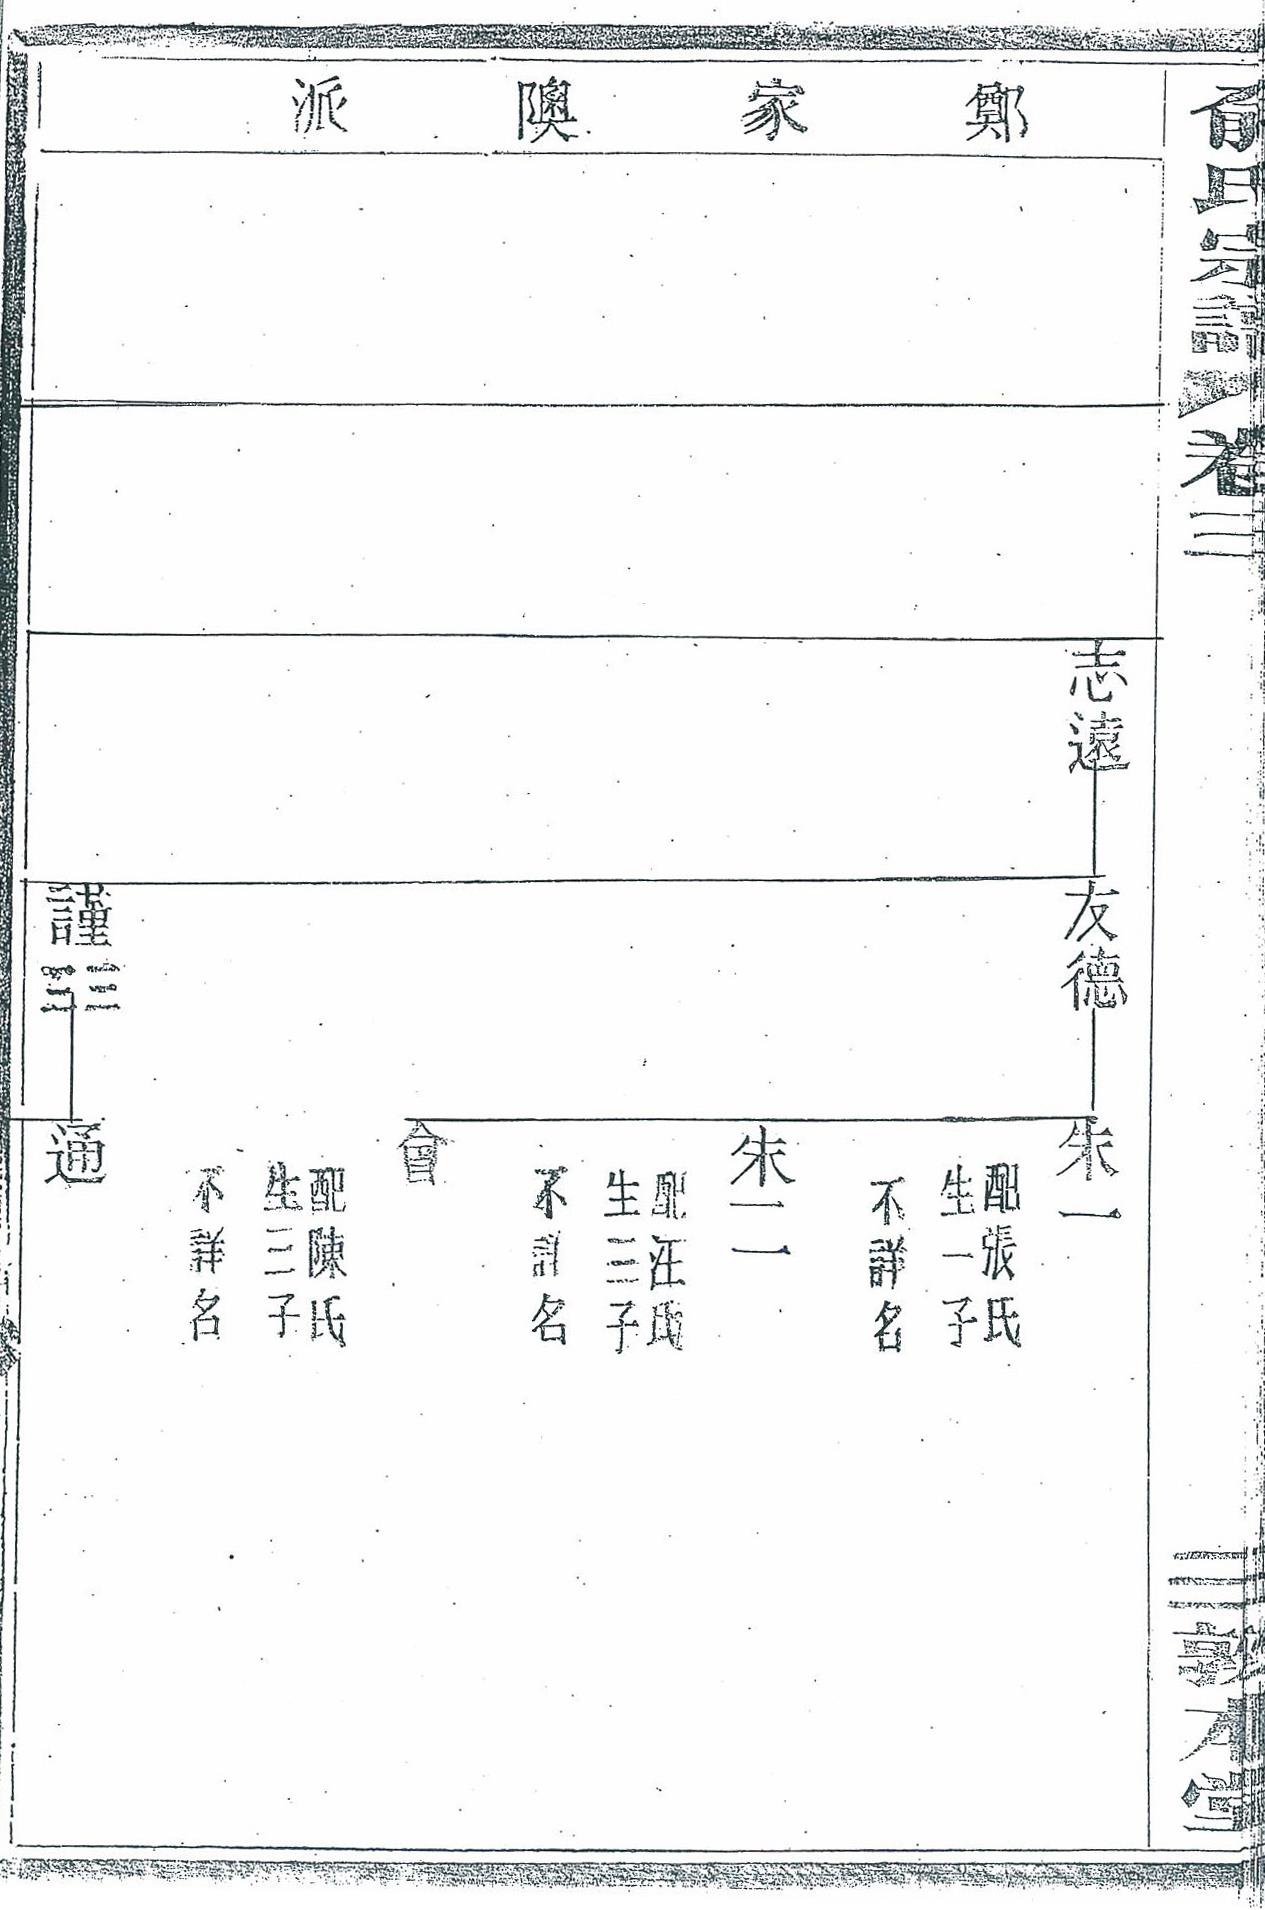 俞氏宗譜
卷三
三
敦本堂
鄭家隩派
志遠
友德
朱一
配張氏
生一子
不詳名
朱二
配汪氏
生三子
不詳名
會
配陳氏
生三子
不詳名
謹
通